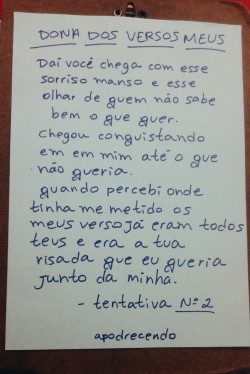 DONA DOS VERSOS MEUS
Daí você chega com esse
sorriso manso e esse
olhar de quem não sabe
bem o que quer.
Chegou conquistando
em em mim até o que
não queria.
quando percebi onde
tinha me metido os
meus verso já eram todos
teus e era a tua
risada que eu queria
junto da minha.
- tentativa Nº 2
apodrecendo